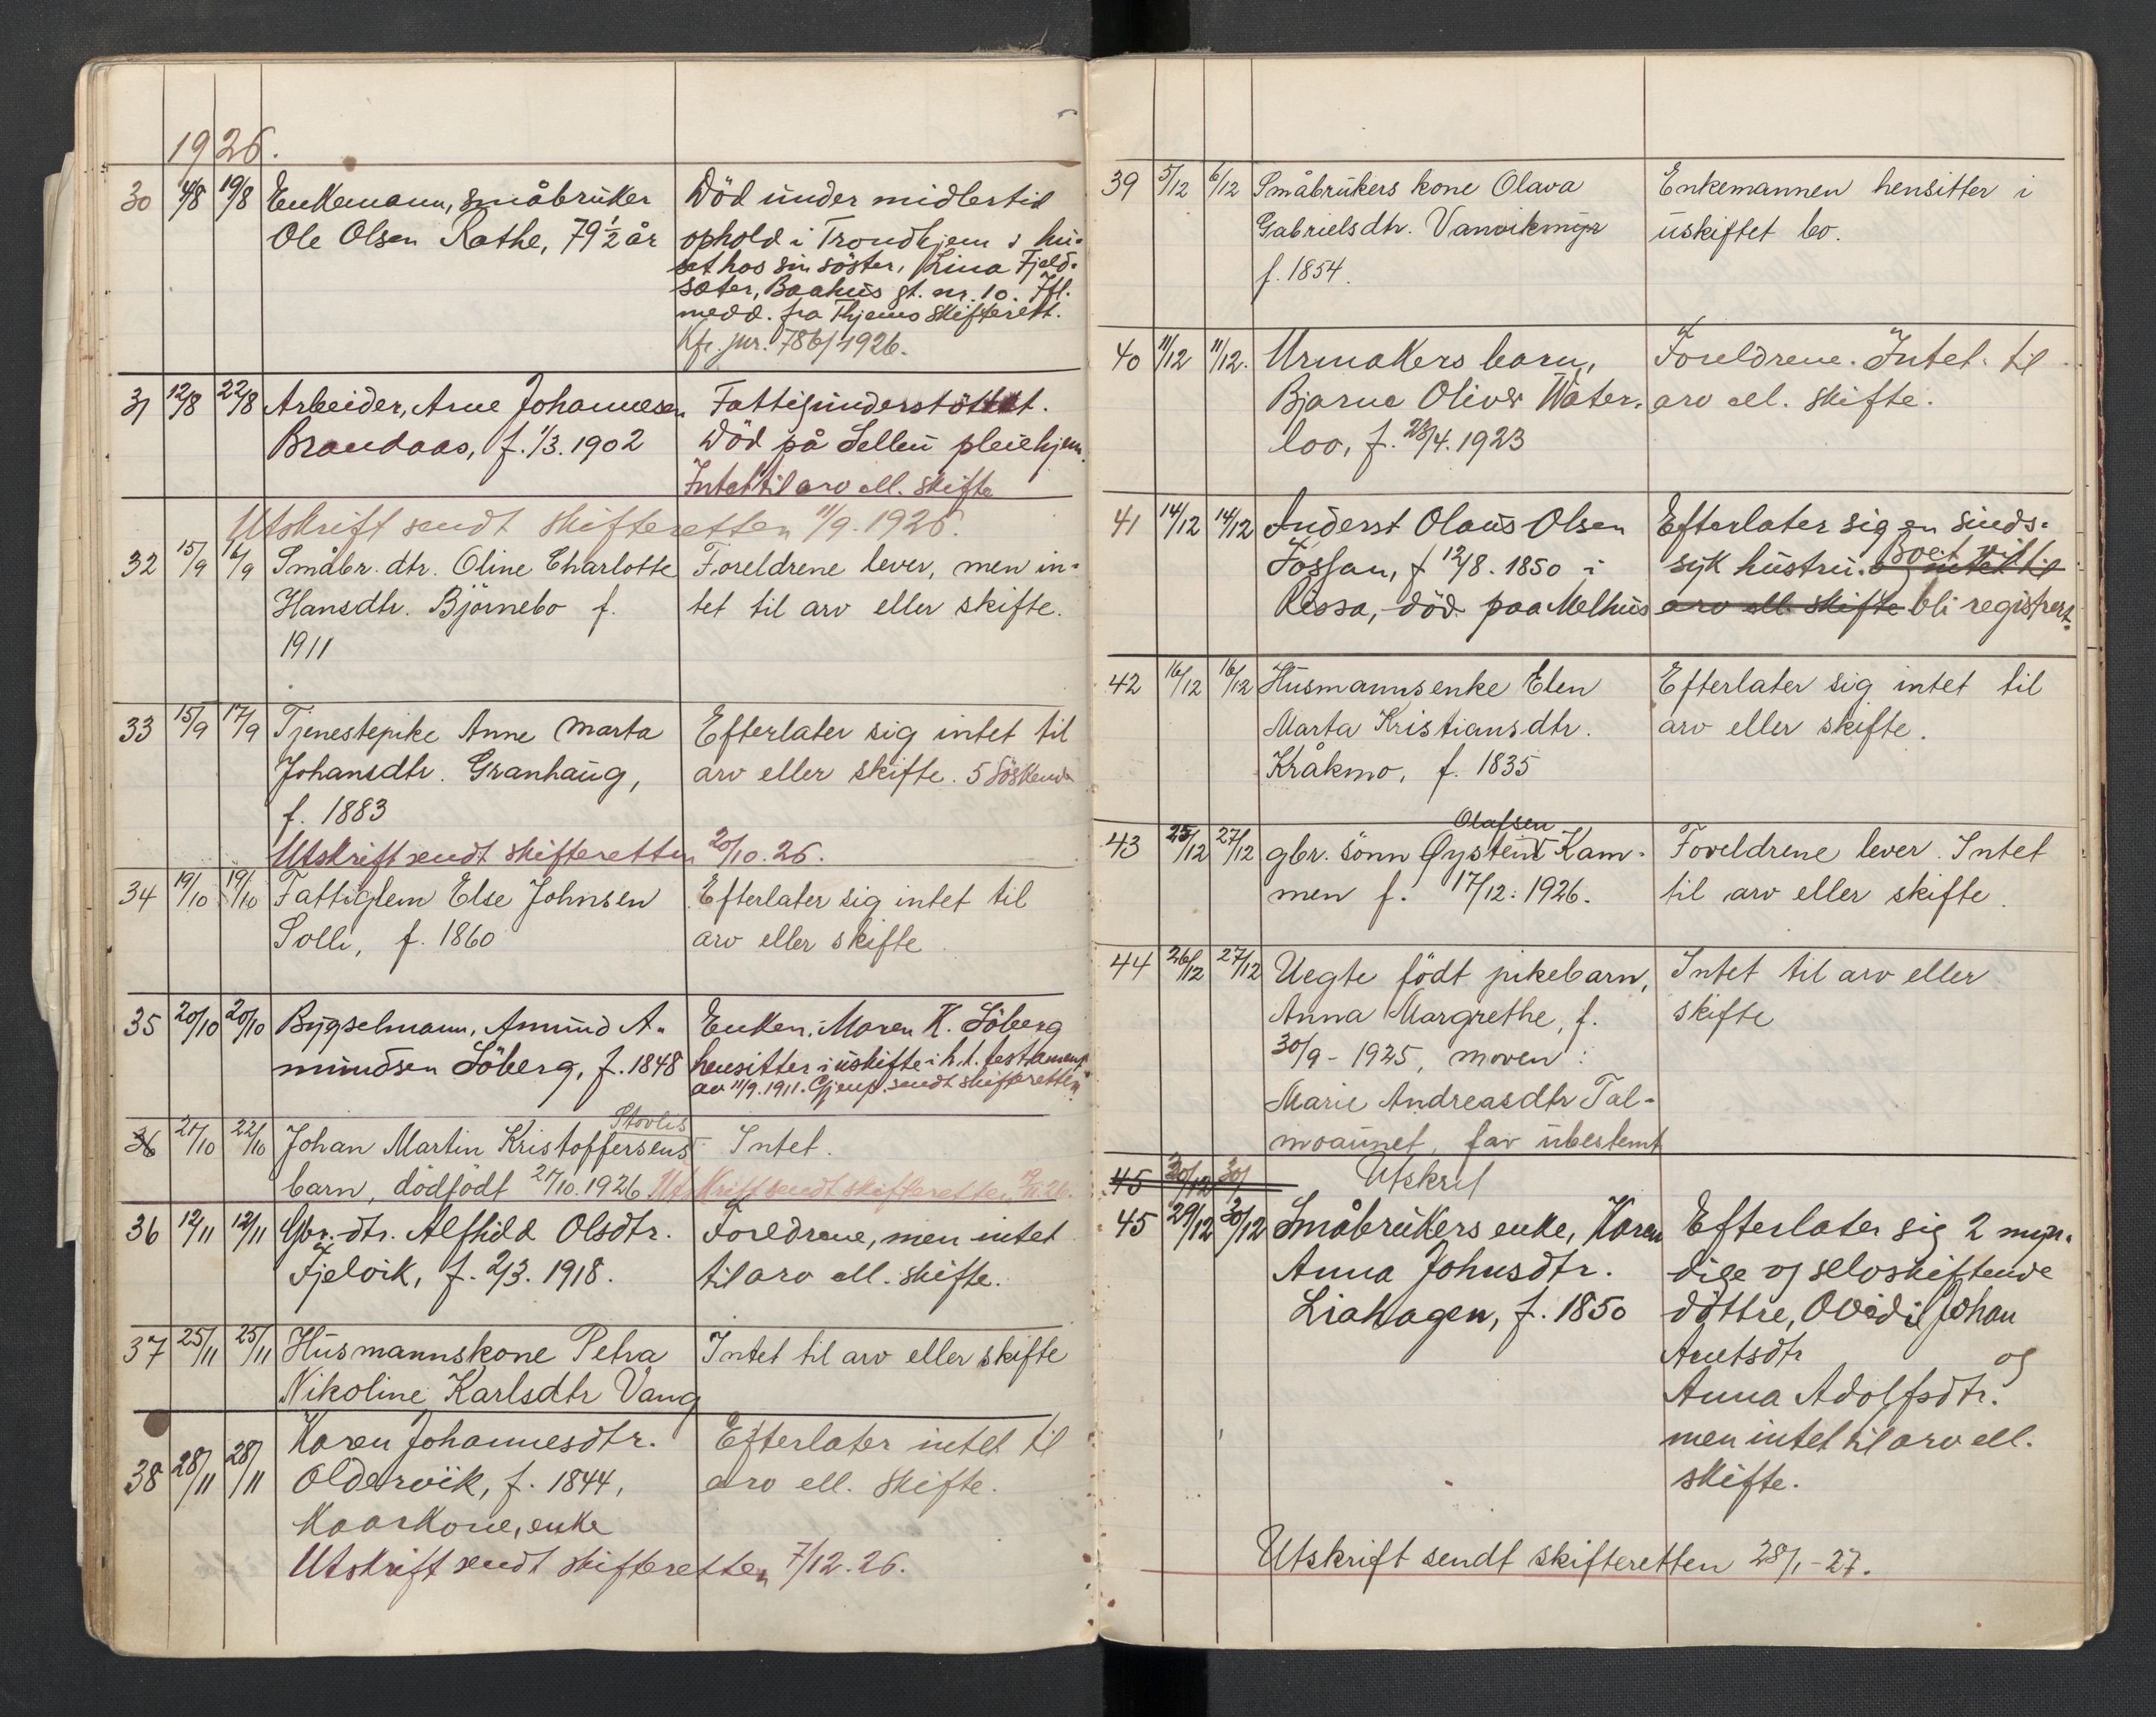 1926.
30 4/8 19/8 Enkemann, småbruker Död under midlertid
Ole Olsen Rathe, 79 1/2 år ophold i Trondhjem i hu-
set hos sin söster, Lina Fjeld-
sæter, Baahus gt. nr. 10. Ifl.
medd. fra Thjems skifterett.
Kfr. jur. 786/1926.
31 12/8 22/8 Arbeider, Arne Johannesen Fattigunderstöttet.
Brandaas, f. 1/3. 1902 Död på Selbu pleiehjem.
Intet til arv ell. skifte
Utskrift sendt skifteretten 11/9. 1926.
32 15/9 16/9 Småbr. dtr. Oline Charlotte Foreldrene lever, men in-
Hansdtr. Björnebo f. tet til arv eller skifte.
1911
33 15/9 17/9 Tjenestepike Anne Marta Efterlater sig intet til
Johansdtr. Granhaug, arv eller skifte. 5 söskende
f. 1883
Utskrift sendt skifteretten 20/10. 26.
34 19/10 19/10 Fattiglem Else Johnsen Efterlater sig intet til
Solli, f. 1860 arv eller skifte.
35 20/10 20/10 Bygselmann, Amund A- Enken, Maren K. Söberg
mundsen Söberg, f. 1848 hensitter i uskifte i h.t. testament
av 11/9. 1911. Gjenp. sendt skifteretten
36 21/10 22/10 Johan Martin Kristoffersens Stovlis Intet.
barn, dödfödt 21/10. 1926 Utskrift sendt skifteretten 26.
36 12/11 12/11 Gbr. dtr. Alfhild Olsdtr. Foreldrene, men intet
Fjelvik, f. 2/3. 1918. til arv ell. skifte.
37 25/11 25/11 Husmannskone Petra Intet til arv eller skifte
Nikoline Karlsdtr Vang
38 28/11 28/11 Karen Johannesdtr. Efterlater intet til
Oldervik, f. 1844, arv ell. skifte.
Kaarkone, enke
Utskrift sendt skifteretten 7/12. 26.
39 5/12 6/12 Småbrukers kone Olava Enkemannen hensitter i
Gabrielsdtr. Vanvikmyr uskiftet bo.
f. 1854.
40 11/12 11/12. Urmakers barn, Foreldrene. Intet til
Bjarne Oliver Water- arv ell. skifte.
loo, f. 23/4. 1923
41 14/12 14/12 Inderst Olaus Olsen Efterlater sig en sinds-
Fossan, f 12/8. 1850 i syk hustru. og intet til boet vil
Rissa, död paa Melhus arv ell. skifte bli registrert.
42 16/12 16/12 Husmannsenke Elen Efterlater sig intet til
Marta Kristiansdtr. arv eller skifte.
Kråkmo, f. 1835
Olafsen
43 25/12 27/12 gbr. sönn Øystein Kam- Foreldrene lever. Intet
men f. 17/12. 1926. til arv eller skifte.
44 26/12 27/12 Uegte födt pikebarn, Intet til arv eller
Anna Margrethe, f. skifte
30/9 - 1925, moren:
Marie Andreasdtr Tal-
moaunet, far ubestemt
45 30/12 30/ Utskrif
45 29/12 30/12 Småbrukers enke, Karen Efterlater sig 2 myn-
Anna Johnsdtr. dige og selvskiftende
Liahagen, f. 1850 döttre, Ovidi Johan
Arntsdtr og
Anna Adolfsdtr.
men intet til arv ell.
skifte.
Utskrift sendt skifteretten 28/1-27.